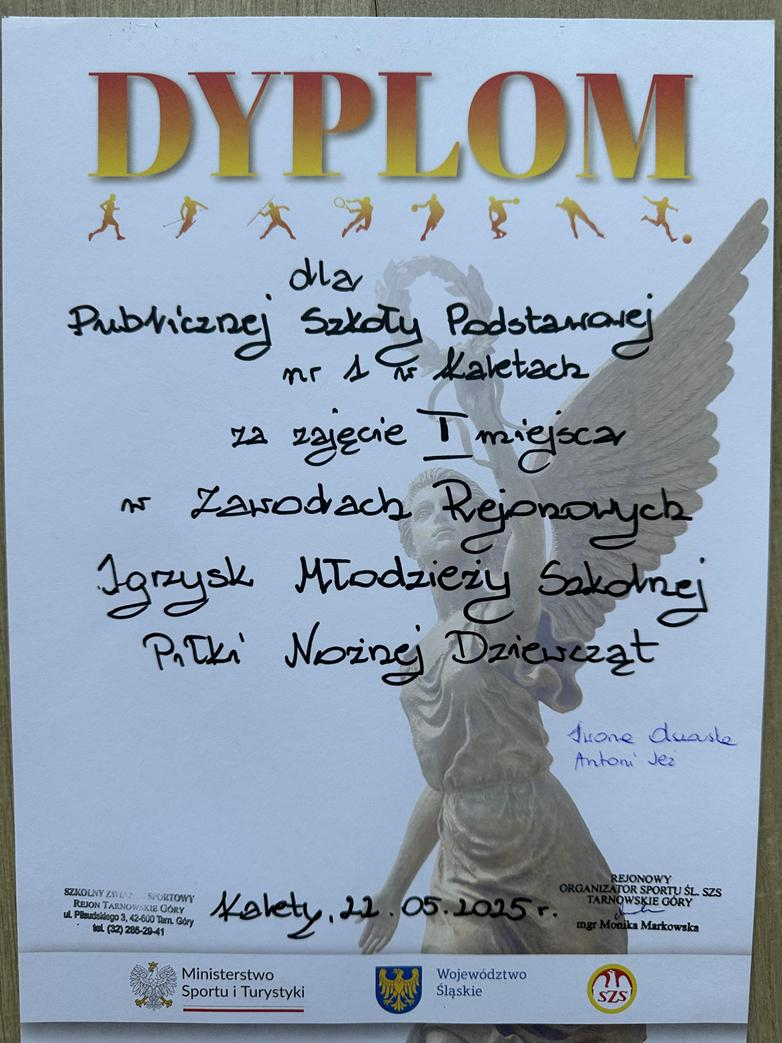 DYPLOM
dla
Publicznej Szkoły Podstawowej
nr 1 w Kaletach
za zajęcie I miejsca
w Zawodach Rejonowych
Igrzysk Młodzieży Szkolnej
Piłki Nożnej Dziewcząt
Iwona
Antoni Jeż
SZKOLNY ZWIĄZEK SPORTOWY
REJON TARNOWSKIE GÓRY
ul. Piłsudskiego 3, 42-600 Tarn. Góry
tel. (32) 285-29-41
Kalety, 22.05.2025 r.
REJONOWY
ORGANIZATOR SPORTU ŚL. SZS
TARNOWSKIE GÓRY
mgr Monika Markowska
Ministerstwo
Sportu i Turystyki
Województwo
Śląskie
SZS